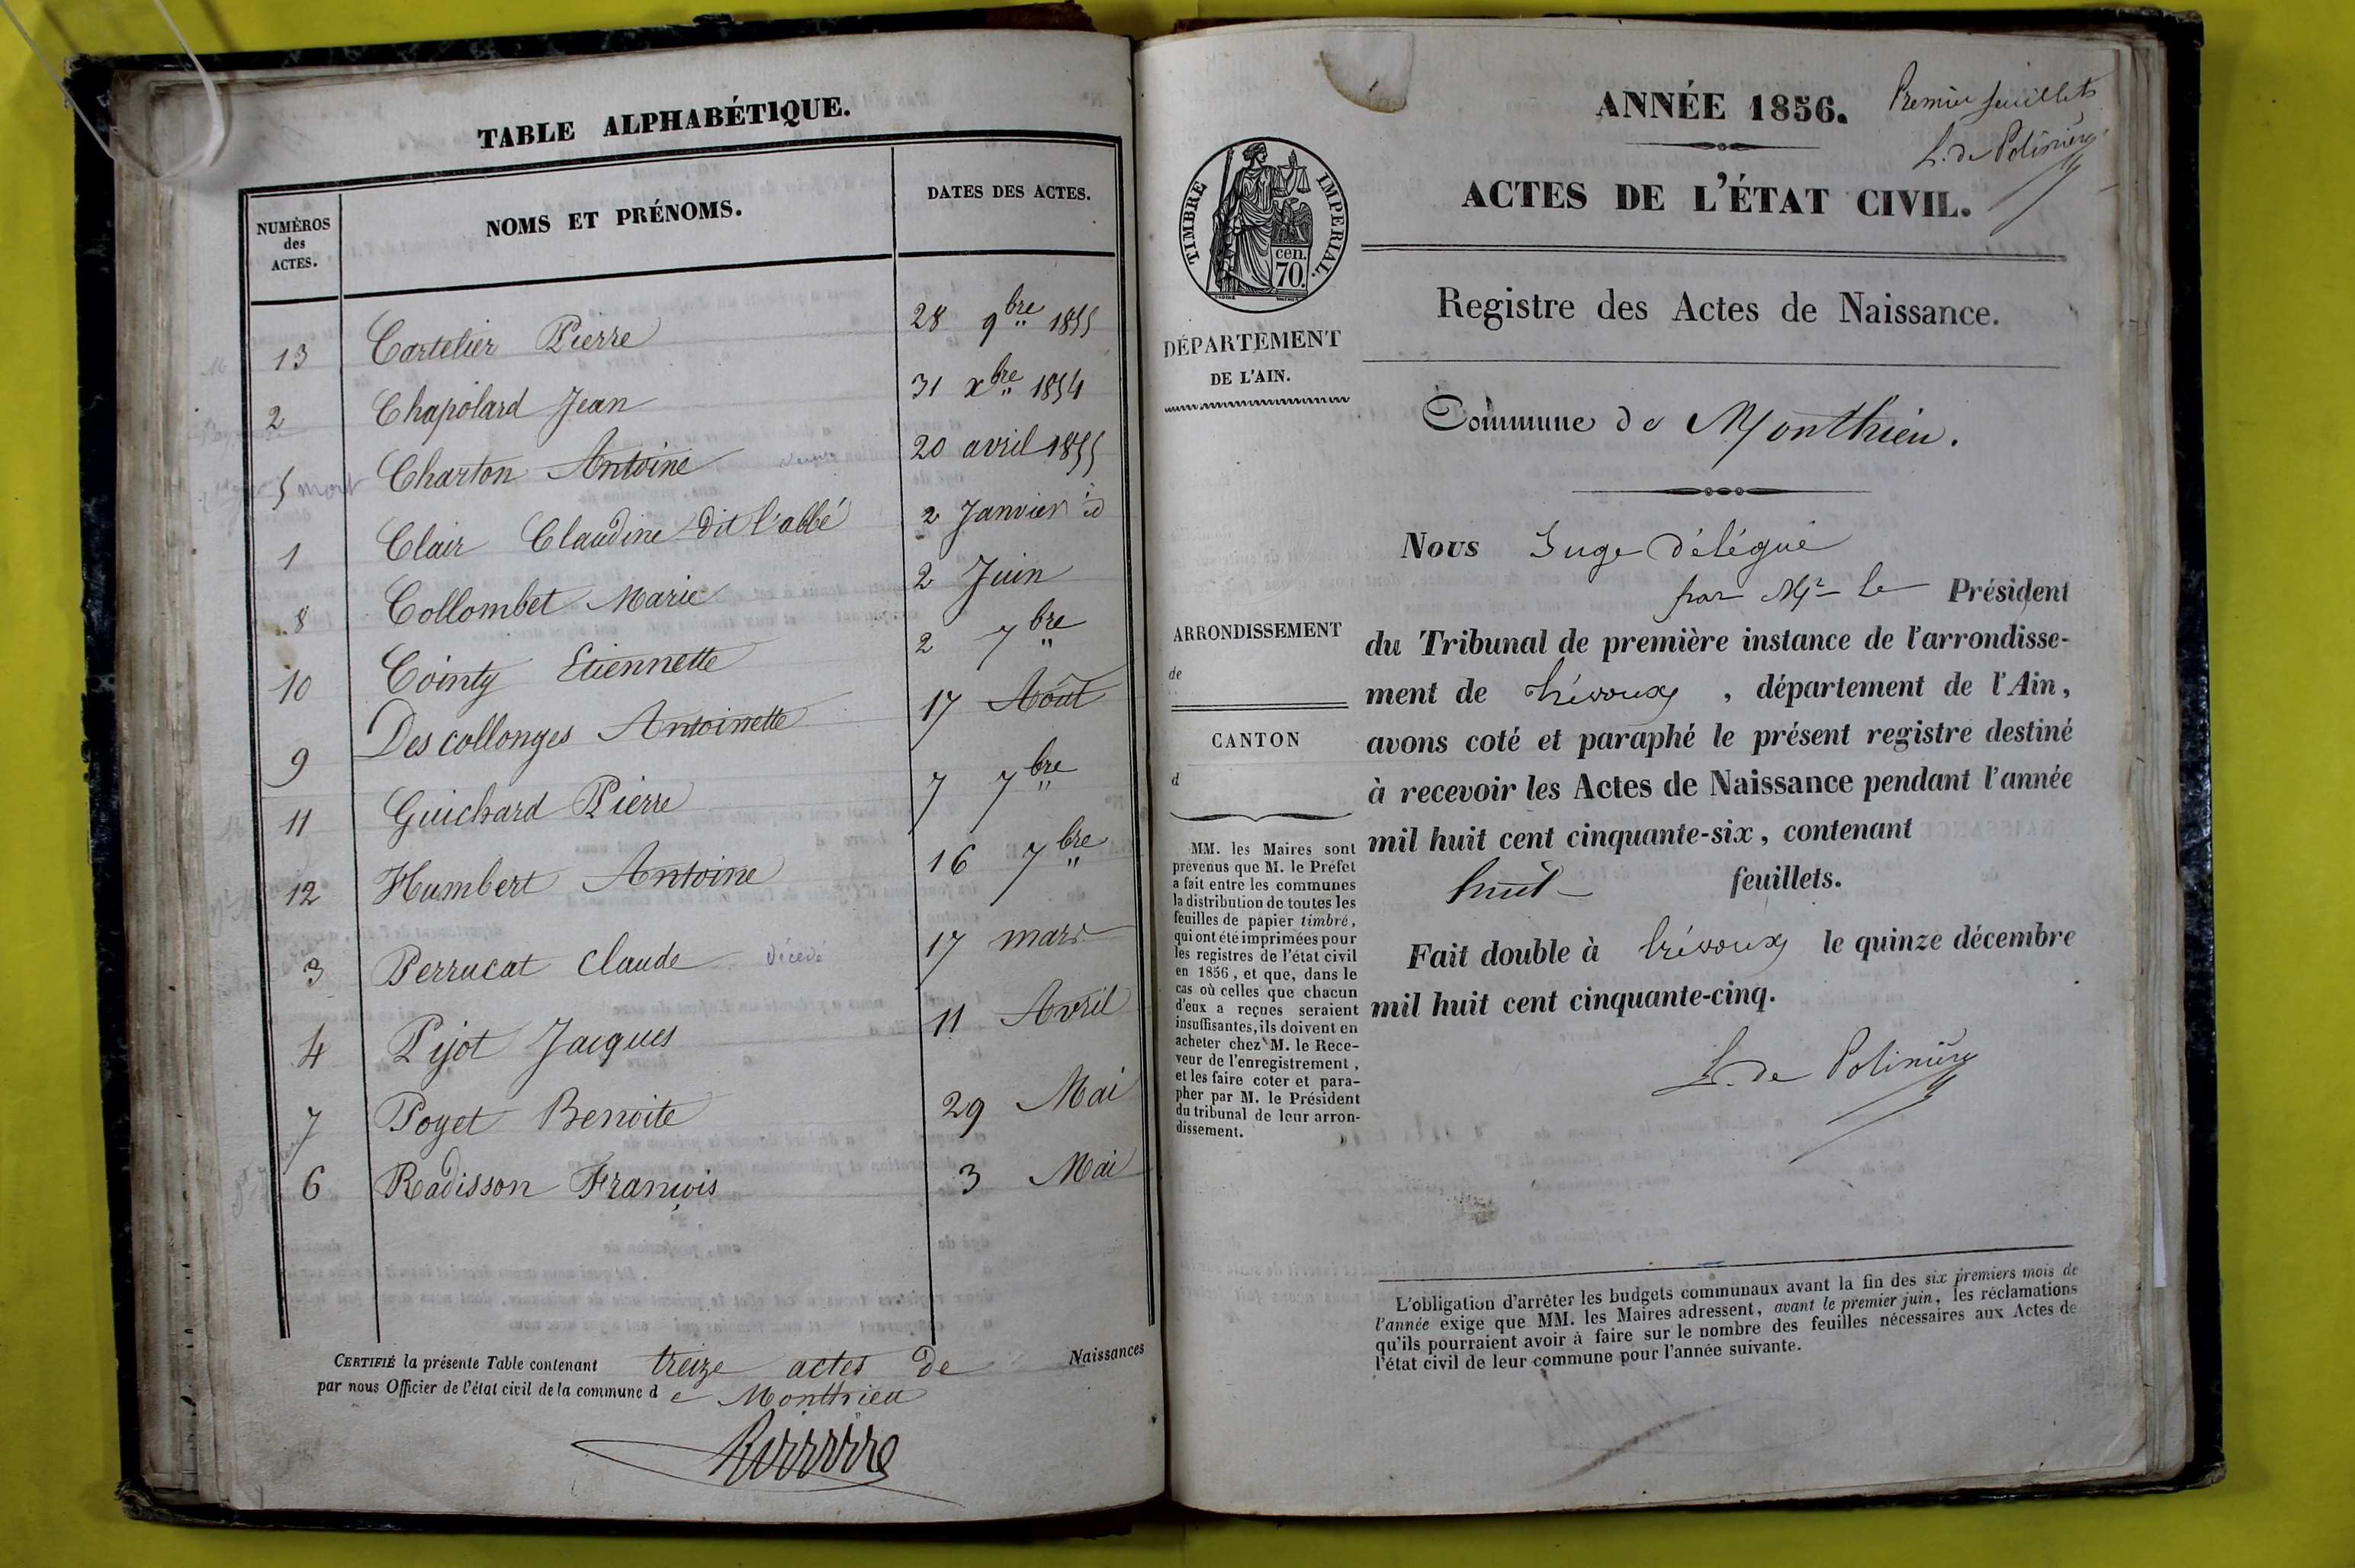 TABLE ALPHABÉTIQUE.
NUMÉROS
des
ACTES.
NOMS ET PRÉNOMS.
DATES DES ACTES.
13 Cartelier Pierre 28 9bre 1855
2 Chapolard Jean 31 xbre 1854
5 mort Charton Antoine 20 avril 1855
1 Clair Claudine dit l'abbé 2 Janvier id
8 Collombet Marie 2 Juin
10 Cointy Etiennette 2 7bre
9 Descollonges Antoinette 17 Août
11 Guichard Pierre 7 7bre
12 Humbert Antoine 16 7bre
3 Perrucat Claude décédé 17 mars
4 Pijot Jacques 11 Avril
7 Poyet Benoite 29 Mai
6 Radisson François 3 Mai
CERTIFIÉ la présente Table contenant treize actes de Naissances
par nous Officier de l'état civil de la commune d e Monthieu
Premier feuillets
L. de Polinière
ANNÉE 1856.
ACTES DE L'ÉTAT CIVIL.
TIMBRE IMPERIAL.
cen.
70.
Registre des Actes de Naissance.
DÉPARTEMENT
DE L'AIN.
Commune de Monthieu.
Nous Juge délégué
par Mr le Président
du Tribunal de première instance de l'arrondisse-
ment de Trévoux, département de l'Ain,
avons coté et paraphé le présent registre destiné
à recevoir les Actes de Naissance pendant l'année
mil huit cent cinquante-six, contenant
huit feuillets.
Fait double à Trévoux le quinze décembre
mil huit cent cinquante-cinq.
L. de Polinière
ARRONDISSEMENT
de
CANTON
d
MM. les Maires sont
prévenus que M. le Préfet
a fait entre les communes
la distribution de toutes les
feuilles de papier timbré,
qui ont été imprimées pour
les registres de l'état civil
en 1856, et que, dans le
cas où celles que chacun
d'eux a reçues seraient
insuffisantes, ils doivent en
acheter chez M. le Rece-
veur de l'enregistrement,
et les faire coter et para-
pher par M. le Président
du tribunal de leur arron-
dissement.
L'obligation d'arrêter les budgets communaux avant la fin des six premiers mois de
l'année exige que MM. les Maires adressent, avant le premier juin, les réclamations
qu'ils pourraient avoir à faire sur le nombre des feuilles nécessaires aux Actes de
l'état civil de leur commune pour l'année suivante.